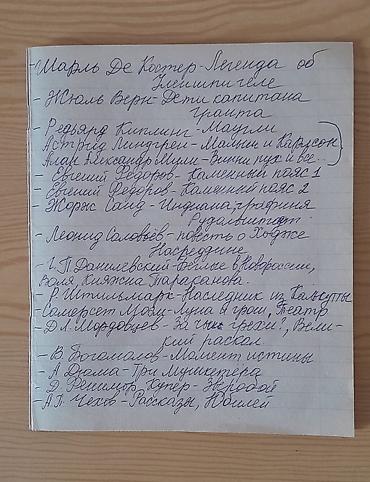 - Шарль Де Костер - Легенда об
Уленшпигеле
- Жюль Верн Дети капитана
Гранта
- Редьярд Киплинг - Маугли
Астрид Линдгрен - Малыш и Карлсон
Алан Александр Милн - Винни пух и все...
- Евгений Федоров - Каменный пояс 1
- Евгений Федоров - Каменный пояс 2
- Жорж Санд - Индиана, графиня
Рудольштат
- Леонид Соловьев - повесть о Ходже
Насреддине
- Г. П Данилевский - Беглые в Новороссии,
Воля, Княжна Тараканова.
- Р. Штильмарк - Наследник из Калькутты
- Сомерсет Моэм - Луна и грош, Театр
- Д. Л. Мордовцев - За чьи грехи?, Вели-
кий раскол
- В. Богомолов - Момент истины
- А Дюма - Три Мушкетера
- Д. Фенимор Купер - Зверобой
- А. П. Чехов - Рассказы, Юбилей